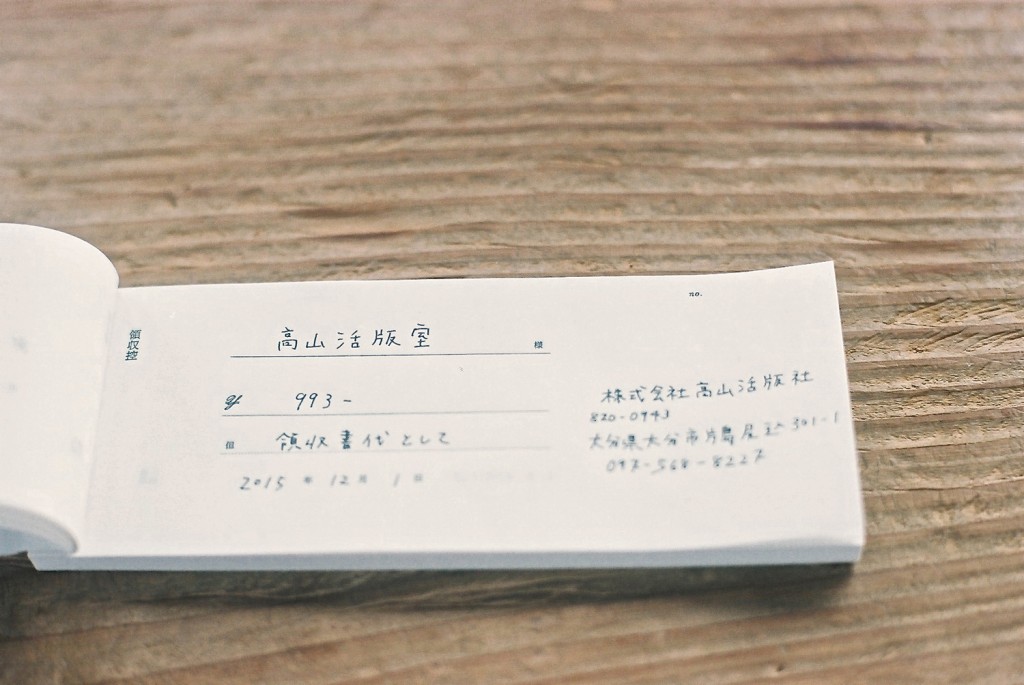 no.
領収控
高山活版室 様
993-
但 領収書代として
2015 年 12 月 1 日
株式会社高山活版社
820-0943
大分県大分市片島尾込301-1
097-568-8227